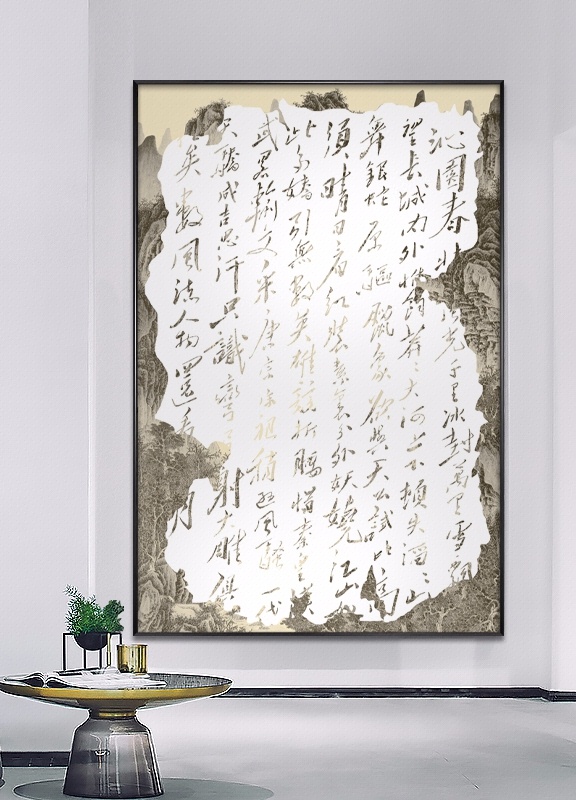 沁園春 北光千里冰封萬里雪飄
望長城內外惟餘莽莽大河上下頓失滔滔山
舞銀蛇原驅臘象欲與天公試比高
須晴日看紅裝素裹分外妖嬈江山如
此多嬌引無數英雄競折腰惜秦皇漢
武略輸文采唐宗宋祖稍遜風騷一代
天驕成吉思汗只識彎弓射大雕俱
矣數風流人物還看